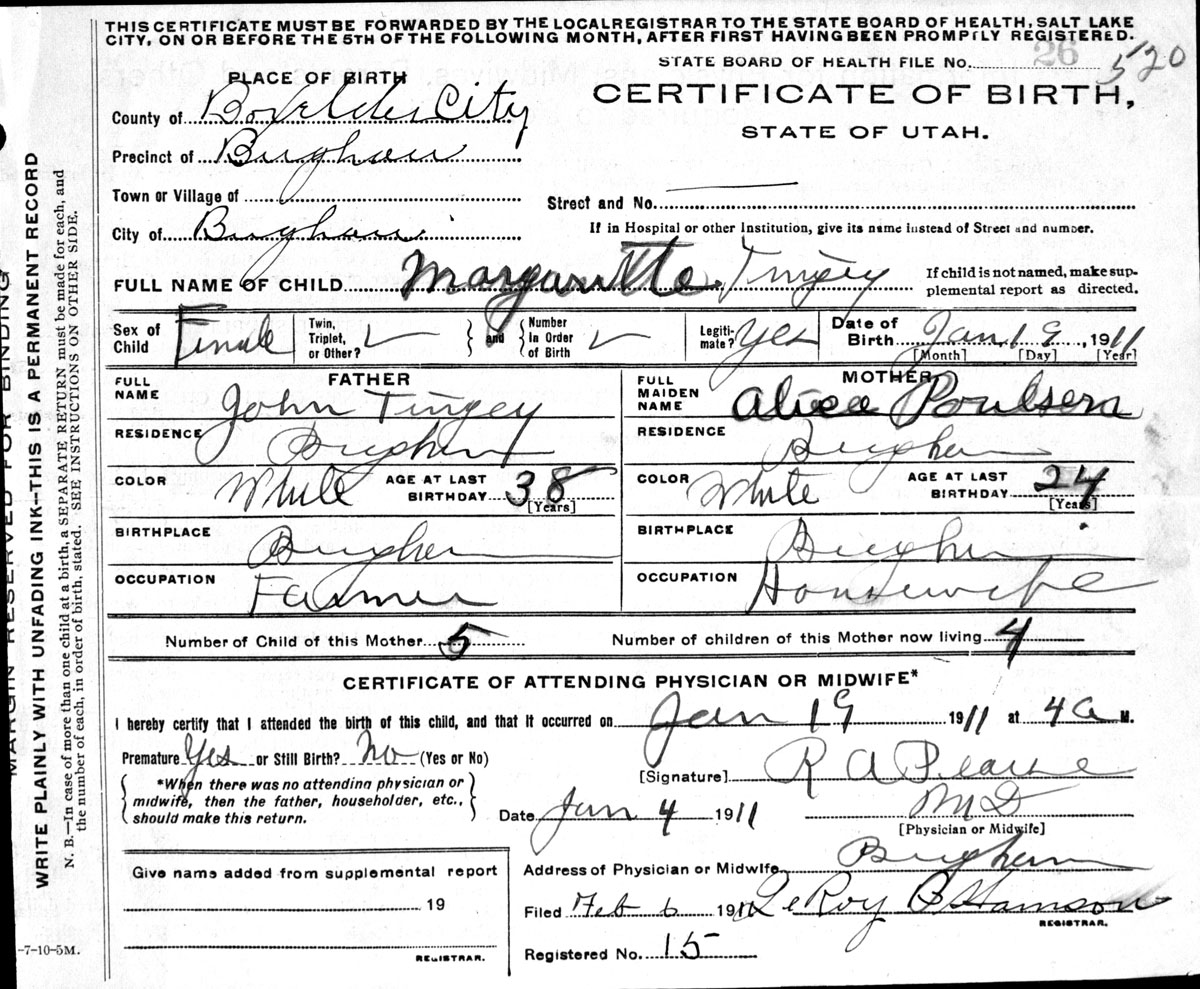 THIS CERTIFICATE MUST BE FORWARDED BY THE LOCAL REGISTRAR TO THE STATE BOARD OF HEALTH, SALT LAKE
CITY, ON OR BEFORE THE 5TH OF THE FOLLOWING MONTH, AFTER FIRST HAVING BEEN PROMPTLY REGISTERED.
STATE BOARD OF HEALTH FILE No. 26 520
PLACE OF BIRTH
CERTIFICATE OF BIRTH,
STATE OF UTAH.
County of Box Elder City
Precinct of Brigham
Town or Village of
Street and No.
City of Brigham
If in Hospital or other Institution, give its name instead of Street and number.
FULL NAME OF CHILD Margueritte Tingey
If child is not named, make sup-
plemental report as directed.
Sex of Child Female
Twin, Triplet, or Other?
and
Number in Order of Birth
Legiti-mate? Yes
Date of Birth Jan 19, 1911
[Month] [Day] [Year]
FATHER
FULL NAME John Tingey
RESIDENCE Brigham
COLOR White AGE AT LAST BIRTHDAY 38
[Years]
BIRTHPLACE Brigham
OCCUPATION Farmer
MOTHER
FULL MAIDEN NAME Alice Poulsen
RESIDENCE Brigham
COLOR White AGE AT LAST BIRTHDAY 24
[Years]
BIRTHPLACE Brigham
OCCUPATION Housewife
Number of Child of this Mother 5 Number of children of this Mother now living 4
CERTIFICATE OF ATTENDING PHYSICIAN OR MIDWIFE*
I hereby certify that I attended the birth of this child, and that it occurred on Jan 19 1911 at 4 a M.
Premature Yes or Still Birth? No (Yes or No)
*When there was no attending physician or
midwife, then the father, householder, etc.,
should make this return.
[Signature] R A Pearse
M D
Date Jan 4 1911
[Physician or Midwife]
Address of Physician or Midwife Brigham
Give name added from supplemental report
19
REGISTRAR.
Filed Feb 6 1911 Le Roy B
REGISTRAR.
Registered No. 15
MARGIN RESERVED FOR BINDING
WRITE PLAINLY WITH UNFADING INK—THIS IS A PERMANENT RECORD
N. B.—In case of more than one child at a birth, a SEPARATE RETURN must be made for each, and
the number of each, in order of birth, stated. SEE INSTRUCTIONS ON OTHER SIDE.
-7-10-5M.